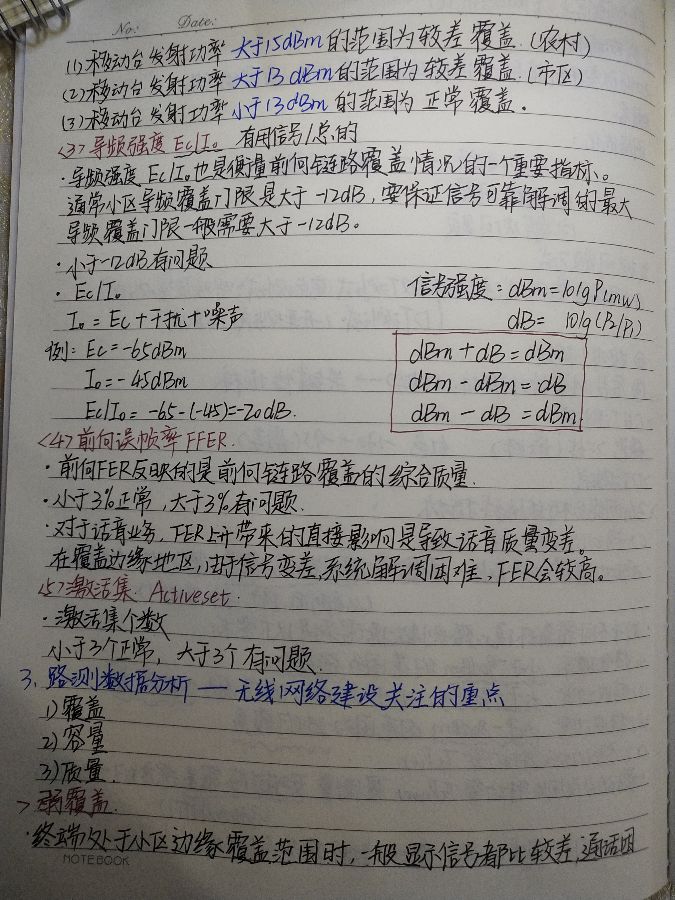 No: Date:
(1)移动台发射功率大于15dBm的范围为较差覆盖.(农村)
(2)移动台发射功率大于13dBm的范围为较差覆盖.(市区)
(3)移动台发射功率小于13dBm的范围为正常覆盖.
<3>导频强度Ec/Io 有用信号/总的
·导频强度Ec/Io也是衡量前向链路覆盖情况的一个重要指标。
通常小区导频覆盖门限是大于-12dB,要保证信号可靠解调的最大
导频覆盖门限一般需要大于-12dB。
·小于-12dB有问题
·Ec/Io
Io=Ec+干扰+噪声
例:Ec=-65dBm
Io=-45dBm
Ec/Io=-65-(-45)=-20dB.
信号强度:dBm=10lgP(mw)
dB= 10lg(P2/P1)
dBm+dB=dBm
dBm-dBm=dB
dBm-dB=dBm
<4>前向误帧率FFER.
·前向FER反映的是前向链路覆盖的综合质量.
·小于3%正常,大于3%有问题.
·对于话音业务,FER上升带来的直接影响是导致话音质量变差。
在覆盖边缘地区,由于信号变差,系统解调困难,FER会较高。
<5>激活集:Activeset.
·激活集个数
小于3个正常,大于3个有问题.
3.路测数据分析——无线网络建设关注的重点
1)覆盖
2)容量
3)质量.
>弱覆盖.
·终端处于小区边缘覆盖范围时,一般显示信号都比较差,通话困
NOTEBOOK